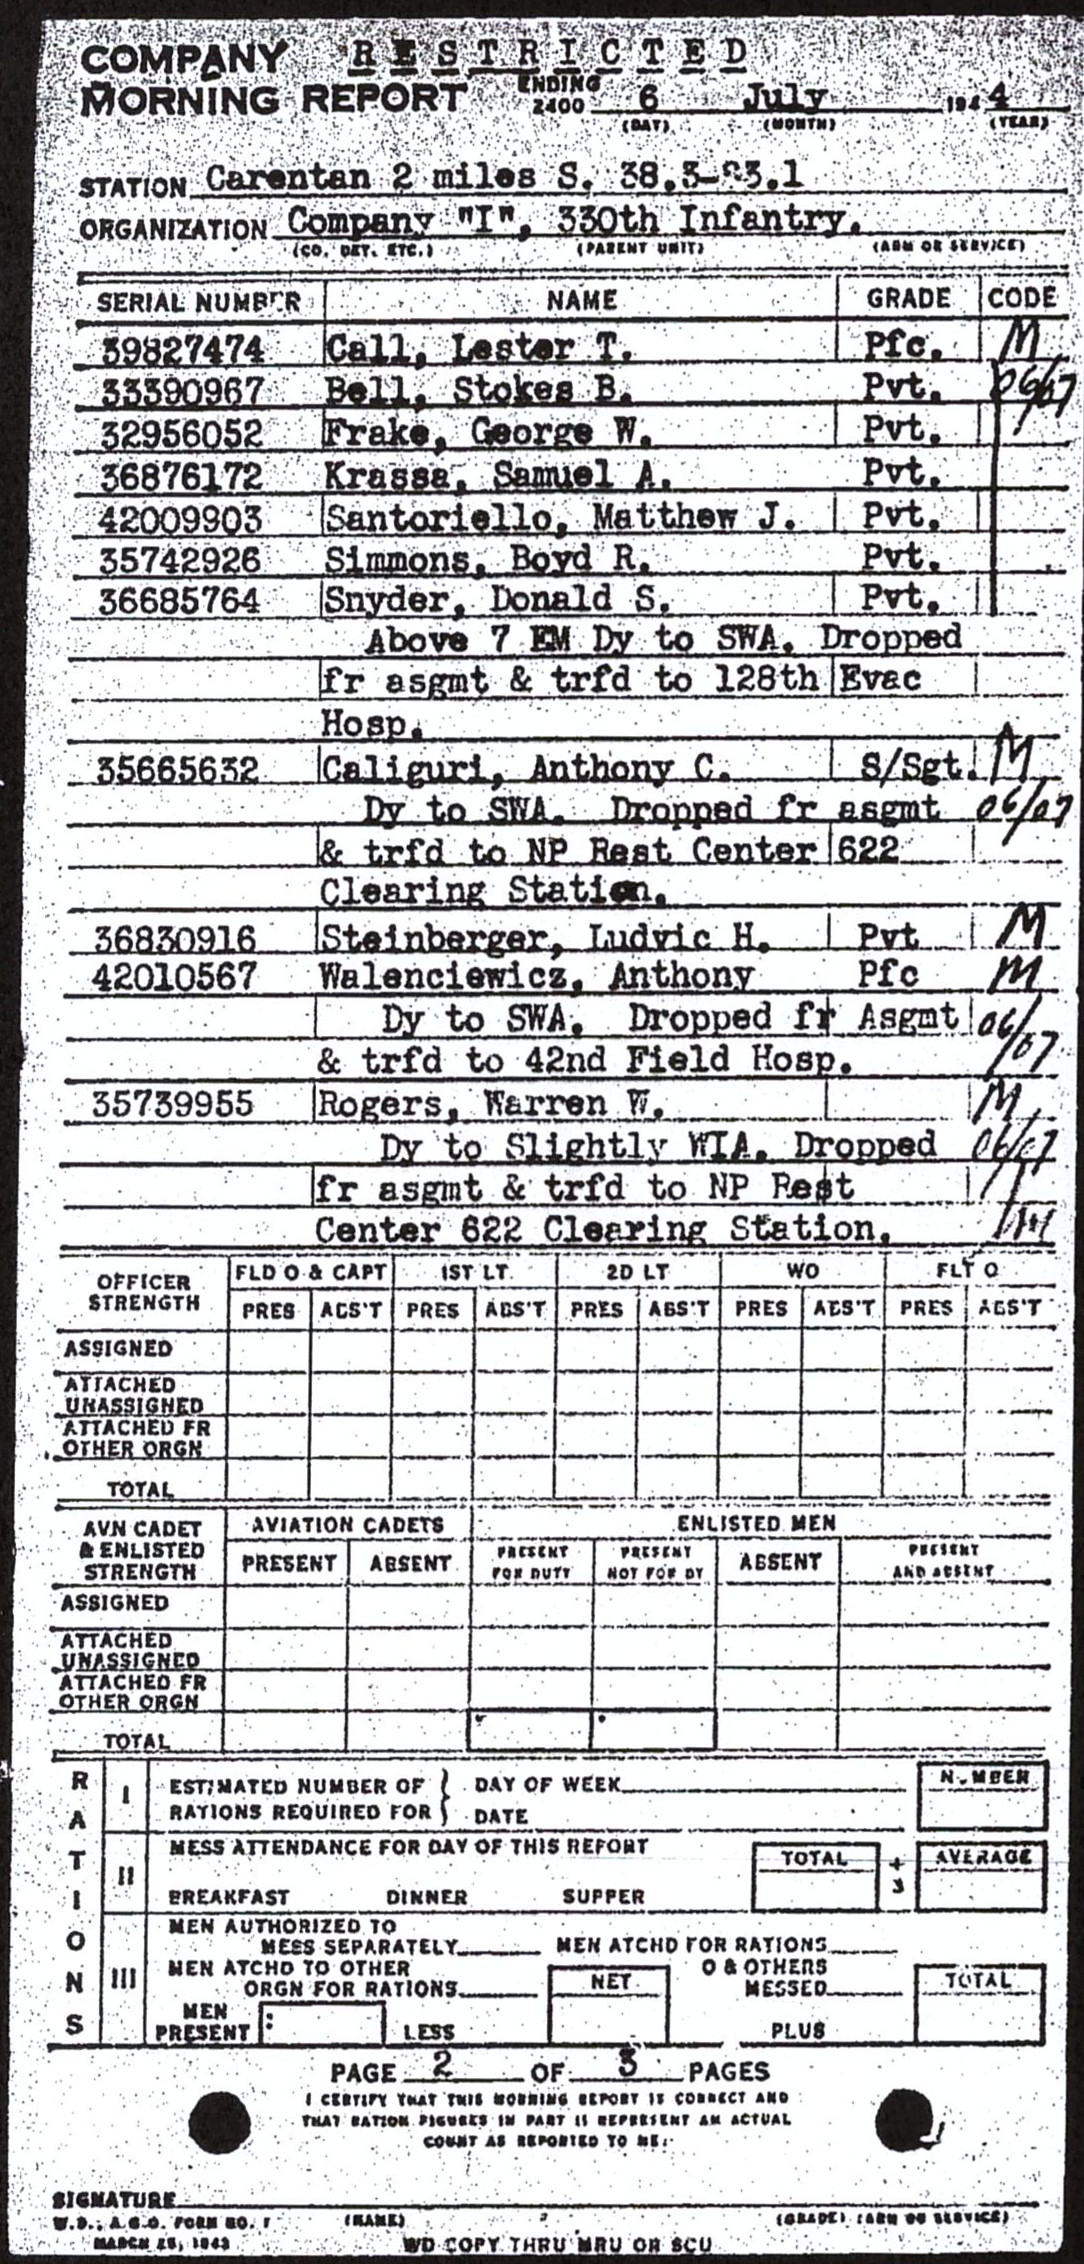 RESTRICTED
COMPANY
MORNING REPORT ENDING 2400 6 July 1944
(DAY) (MONTH) (YEAR)
STATION Carentan 2 miles S. 38.3-23.1
ORGANIZATION Company "I", 330th Infantry.
(CO. DET. ETC.) (PARENT UNIT) (ARM OR SERVICE)
SERIAL NUMBER NAME GRADE CODE
39827474 Call, Lester T. Pfc. M
33390967 Bell, Stokes B. Pvt. 06/07
32956052 Frake, George W. Pvt.
36876172 Krassa, Samuel A. Pvt.
42009903 Santoriello, Matthew J. Pvt.
35742926 Simmons, Boyd R. Pvt.
36685764 Snyder, Donald S. Pvt.
Above 7 EM Dy to SWA. Dropped
fr asgmt & trfd to 128th Evac
Hosp.
35665632 Caliguri, Anthony C. S/Sgt. M
Dy to SWA. Dropped fr asgmt 06/07
& trfd to NP Rest Center 622
Clearing Station.
36830916 Steinberger, Ludvic H. Pvt M
42010567 Walenciewicz, Anthony Pfc M
Dy to SWA. Dropped fr Asgmt 06/07
& trfd to 42nd Field Hosp.
35739955 Rogers, Warren W. M
Dy to Slightly WIA. Dropped 06/07
fr asgmt & trfd to NP Rest
Center 622 Clearing Station.
OFFICER STRENGTH FLD O & CAPT 1ST LT 2D LT WO FLT O
PRES ABS'T PRES ABS'T PRES ABS'T PRES ABS'T PRES ABS'T
ASSIGNED
ATTACHED
UNASSIGNED
ATTACHED FR
OTHER ORGN
TOTAL
AVN CADET & ENLISTED STRENGTH AVIATION CADETS ENLISTED MEN
PRESENT ABSENT PRESENT FOR DUTY PRESENT NOT FOR DY ABSENT PRESENT AND ABSENT
ASSIGNED
ATTACHED
UNASSIGNED
ATTACHED FR
OTHER ORGN
TOTAL
RATIONS
I ESTIMATED NUMBER OF } DAY OF WEEK NUMBER
RATIONS REQUIRED FOR } DATE
II MESS ATTENDANCE FOR DAY OF THIS REPORT TOTAL ÷ 3 AVERAGE
BREAKFAST DINNER SUPPER
III MEN AUTHORIZED TO
MESS SEPARATELY MEN ATCHD FOR RATIONS
MEN ATCHD TO OTHER O & OTHERS
ORGN FOR RATIONS NET MESSED TOTAL
MEN
PRESENT LESS PLUS
PAGE 2 OF 3 PAGES
I CERTIFY THAT THIS MORNING REPORT IS CORRECT AND
THAT RATION FIGURES IN PART II REPRESENT AN ACTUAL
COUNT AS REPORTED TO ME:
SIGNATURE
(NAME) (GRADE) (ARM OR SERVICE)
W.D., A.G.O. FORM NO. 1
MARCH 25, 1943 WD COPY THRU MRU OR SCU